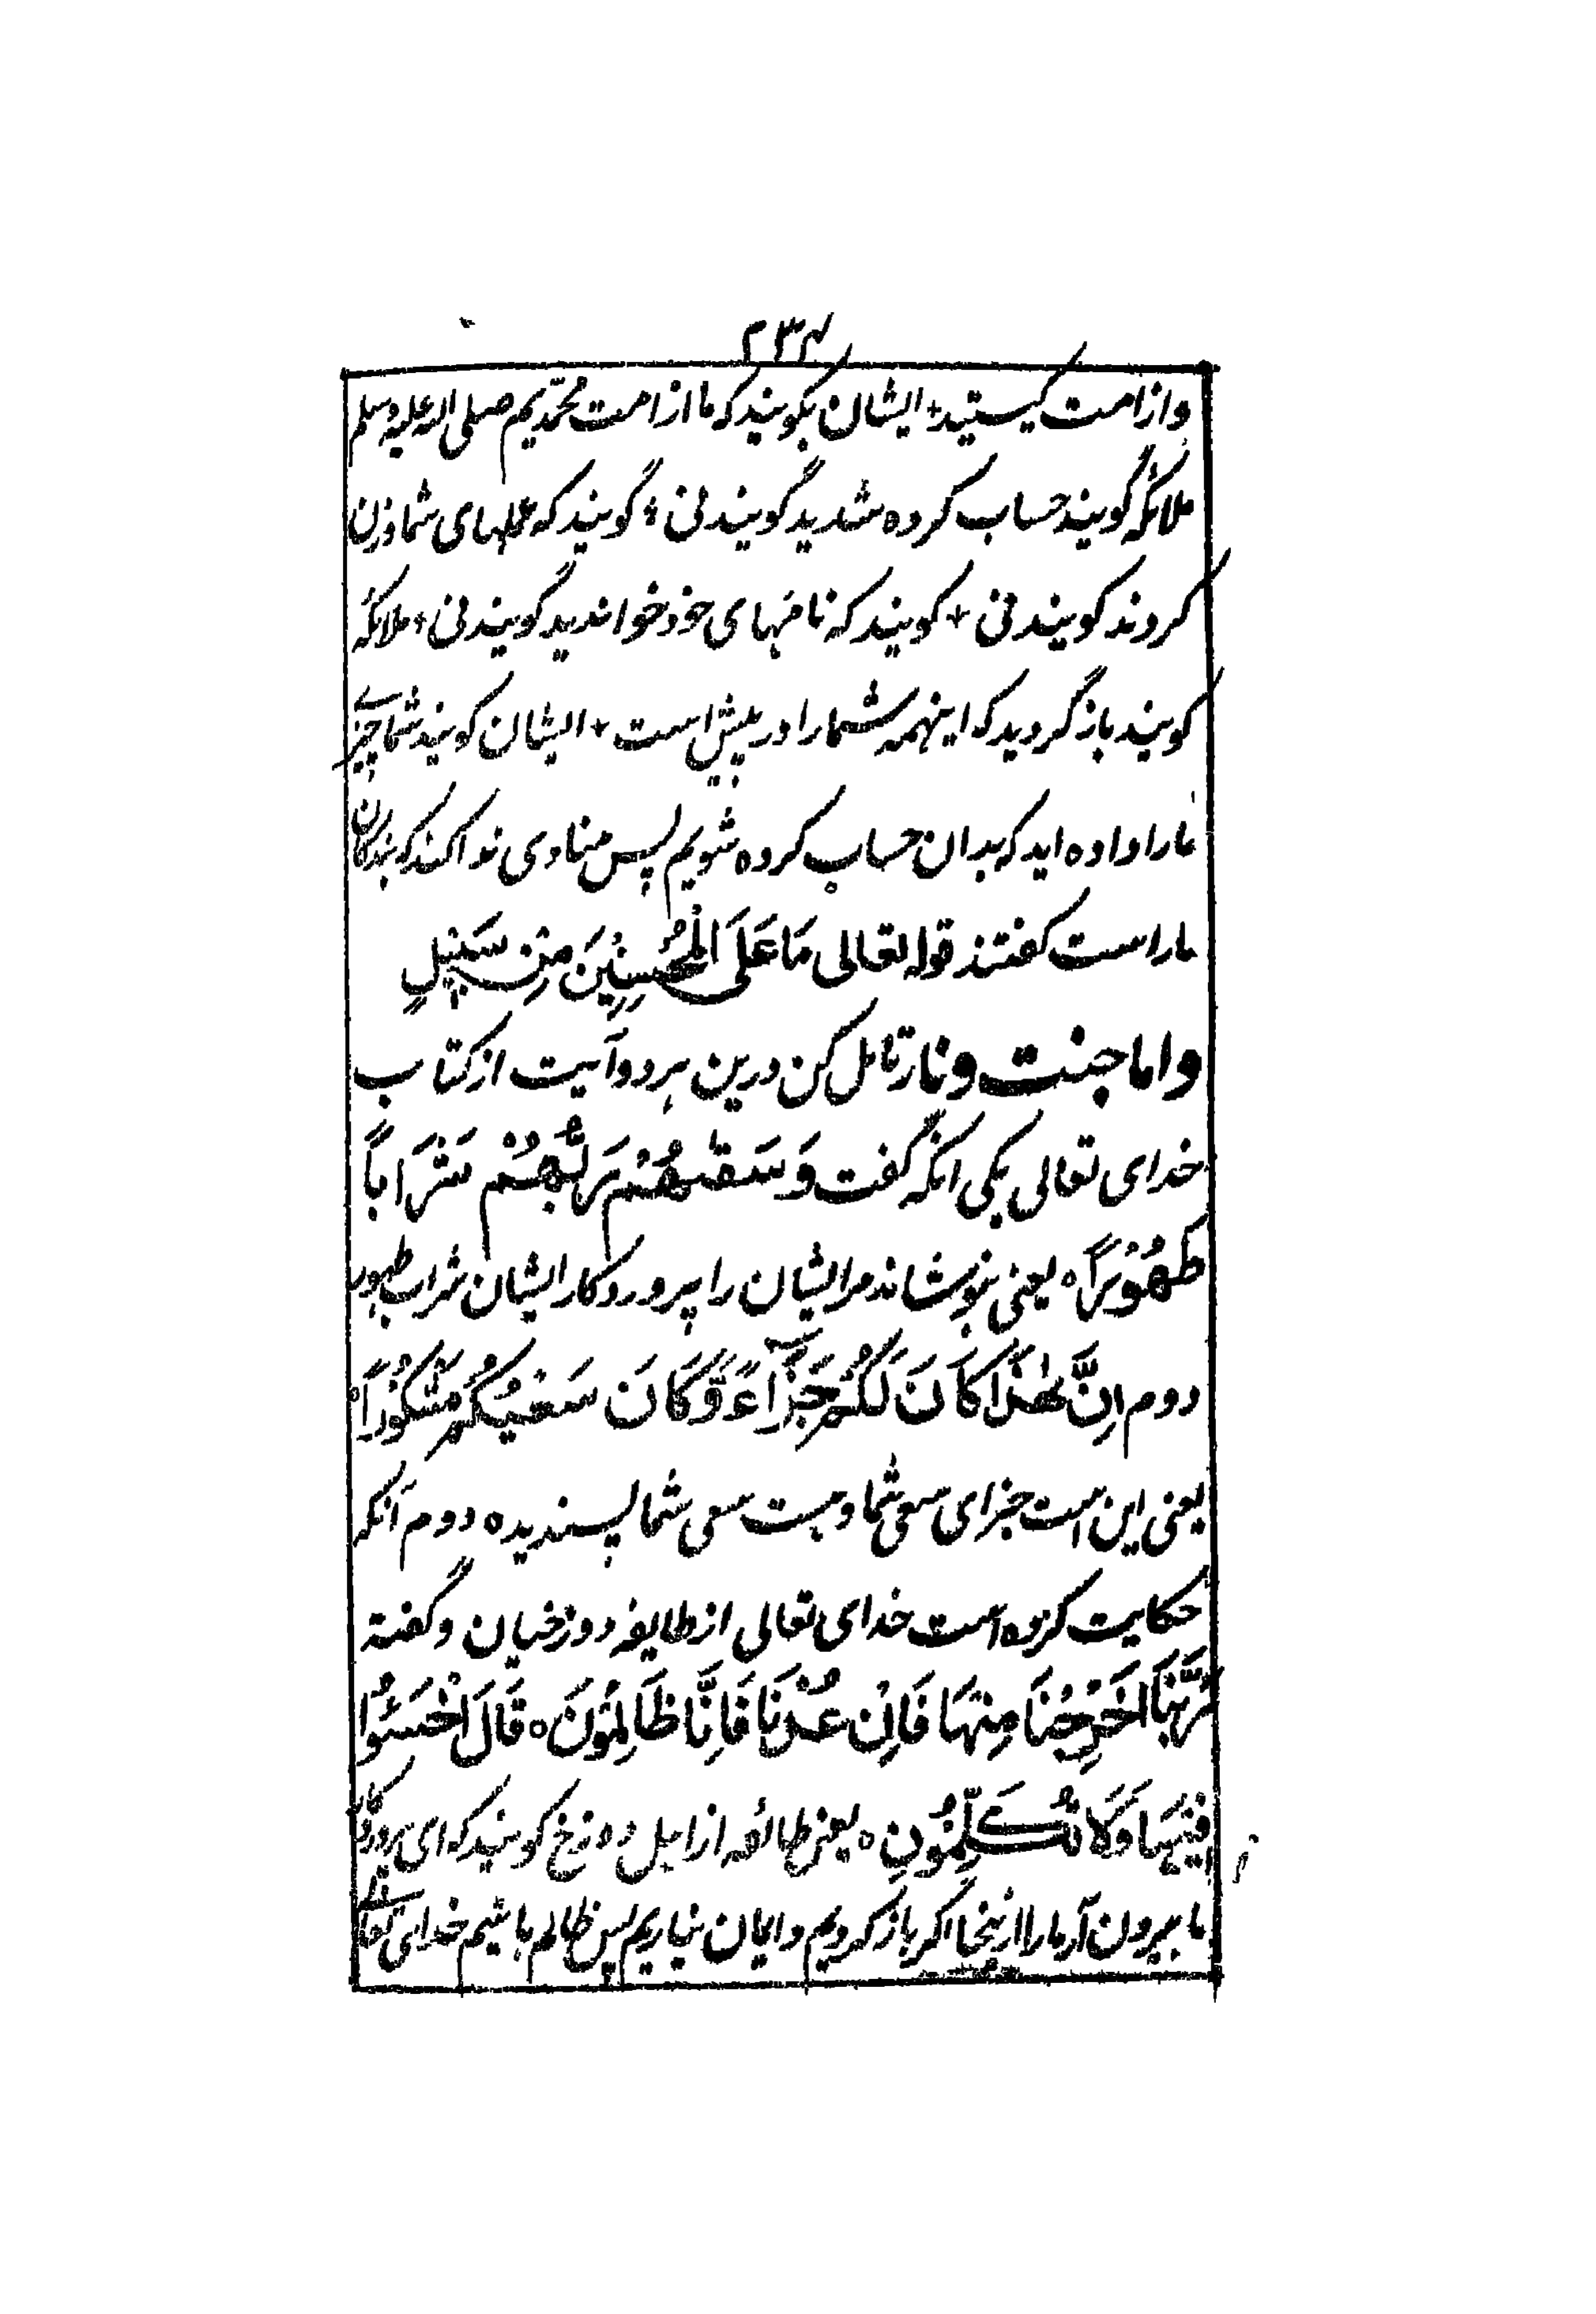 ۲۳۴
و از امت کیستید + ایشان بگویند که ما از امت محمدیم صلی الله علیه وسلم
ملائکه گویند حساب کرده شدید گویند نی + گویند که عملهای شما وزن
کردند کویند نی + کویند که نامهای خود خواندید گویند نی + ملائکه
کویند باز گردید که اینهمه شما را در پیش است + ایشان کویند شما چیزے
مارا داده اید که بدان حساب کرده شویم پس منادی ندا کند که بندگان
ما راست کفتند قوله تعالی مَا عَلَى الْمُحْسِنِيْنَ مِنْ سَبِيْلٍ
و اما جنت و نار تامل کن درین هر دو آیت از کتاب
خدای تعالی یکی انکه گفت وَسَقٰهُمْ رَبُّهُمْ شَرَاباً
طَهُوْراً ه یعنی بنوشاند مر ایشان را پروردکار ایشان شراب طهور
دوم اِنَّ هٰذَا كَانَ لَكُمْ جَزَآءً وَّكَانَ سَعْيُكُمْ مَشْكُوْراً ه
یعنی این است جزای سعی شما و هست سعی شما پسندیده ه دوم آنکه
حکایت کرده است خدای تعالی از طایفه دوزخیان و گفته
رَبَّنَا اَخْرِجْنَا مِنْهَا فَاِنْ عُدْنَا فَاِنَّا ظَالِمُوْنَ ه قَالَ اخْسَئُوْا
فِيْهَا وَلَا تُكَلِّمُوْنِ ه یعنی طائفه از اهل دوزخ کویند که ای پروردگار
ما بیرون آر ما را ازینجا اگر باز کردیم و ایمان نیاریم پس ظالم باشیم خدای تعالے